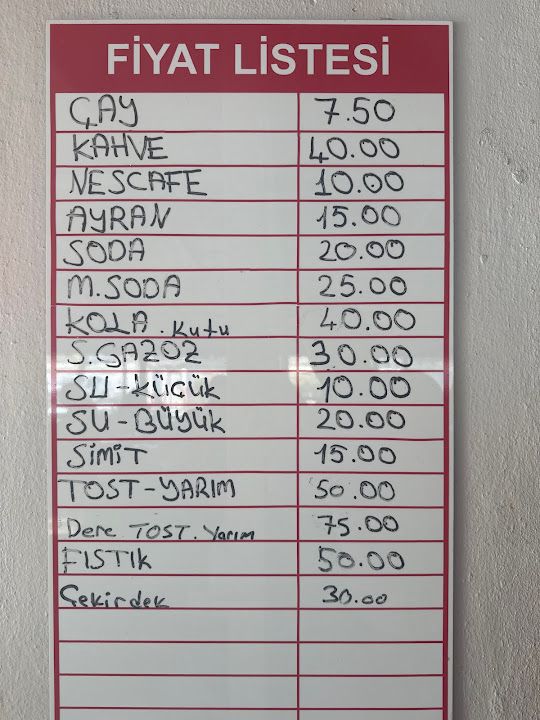 FİYAT LİSTESİ
ÇAY 7.50
KAHVE 40.00
NESCAFE 10.00
AYRAN 15.00
SODA 20.00
M.SODA 25.00
KOLA.Kutu 40.00
S.GAZOZ 30.00
SU-KÜÇÜK 10.00
SU-BÜYÜK 20.00
SİMİT 15.00
TOST-YARIM 50.00
Dere TOST.Yarım 75.00
FISTIK 50.00
Çekirdek 30.00